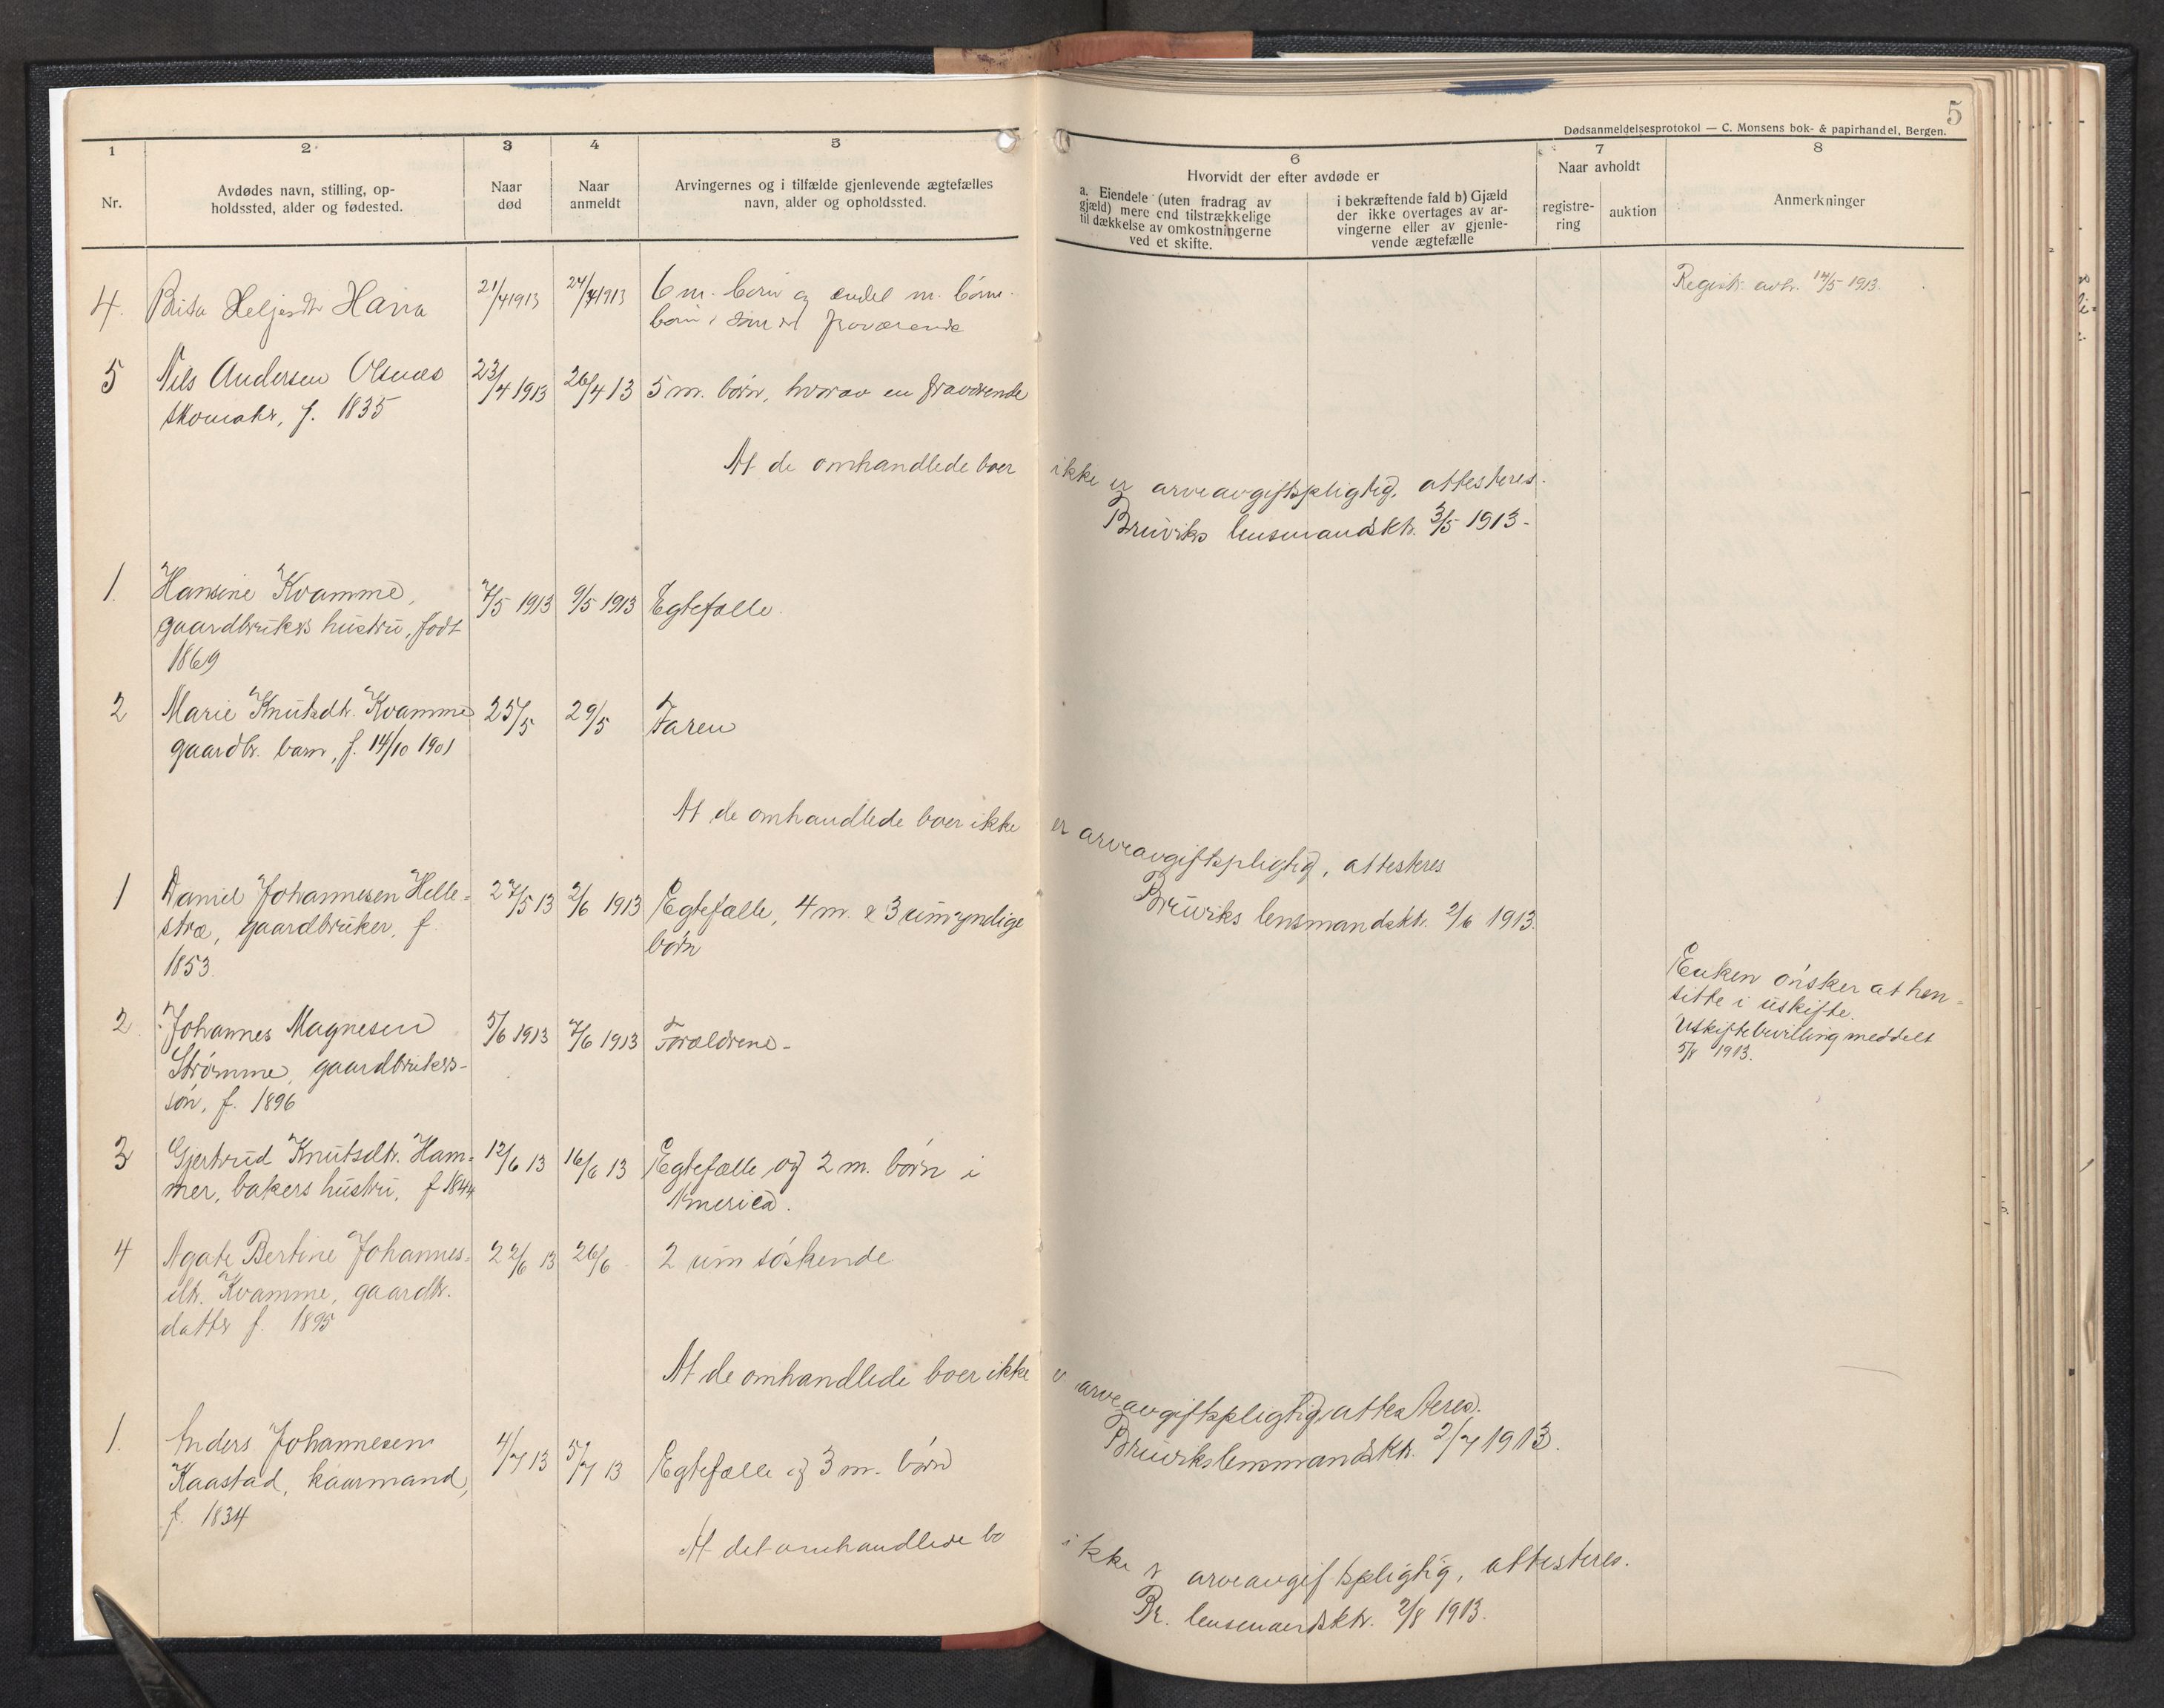 5
Dødsanmeldelsesprotokol — C. Monsens bok- & papirhandel, Bergen.
1
2
3
4
5
6
7
8
Nr.
Avdødes navn, stilling, op-
holdssted, alder og fødested.
Naar
død
Naar
anmeldt
Arvingernes og i tilfælde gjenlevende ægtefælles
navn, alder og opholdssted.
Hvorvidt der efter avdøde er
a. Eiendele (uten fradrag av
gjæld) mere end tilstrækkelige
til dækkelse av omkostningerne
ved et skifte.
i bekræftende fald b) Gjæld
der ikke overtages av ar-
vingerne eller av gjenle-
vende ægtefælle
Naar avholdt
registre-
ring
auktion
Anmerkninger
4. Brita Heljesdtr 21/4 1913 24/4 1913 6 m. børn og endel m. børne-
børn fraværende
Registr. avh. 14/5 1913.
5 Nils Andersen Olsnæs 23/4 1913 26/4 13 5 m. børn, hvorav en fraværende
skomaker, f. 1835
At de omhandlede boer ikke er arveavgiftspligtig, attesteres.
Bruviks lensmandsktr. 3/5 1913-
1. Hansine Kvamme, 7/5 1913 9/5 1913 Egtefælle.
gaardbrukers hustru, født
1869
2 Marie Knutsdtr. Kvamme 25/5 29/5 Faren
gaardbr. barn, f. 14/10 1901
At de omhandlede boer ikke er arveavgiftspligtig, attesteres
Bruviks lensmandsktr. 2/6 1913.
1 Daniel Johannesen Helle- 27/5 13 2/6 1913 Egtefælle, 4 m. & 3 umyndige
stræ, gaardbruker, f. børn
1853.
Enken ønsker at hen-
sitte i uskifte.
Uskiftebevilling meddelt
5/8 1913.
2. Johannes Magnesen 5/6 1913 7/6 1913 Forældrene-
Strømme, gaardbrukers-
søn, f. 1896
3 Gjertrud Knutsdtr. Ham- 12/6 13 16/6 13 Egtefælle og 2 m. børn i
mer, bakers hustru, f 1844 America.
4 Agate Bertine Johannes- 22/6 13 26/6 2 um søskende
dtr. Kvamme, gaardbr.
datter f. 1895
At de omhandlede boer ikke er arveavgiftspligtig attesteres.
Bruviks lensmandsktr. 2/7 1913.
1. Anders Johannesen 4/7 13 5/7 13 Egtefælle og 3 m. børn
Kaastad, kaarmand,
f. 1834
At det omhandlede bo ikke er arveavgiftspligtig, attesteres.
Br. lensmandsktr. 2/8 1913.